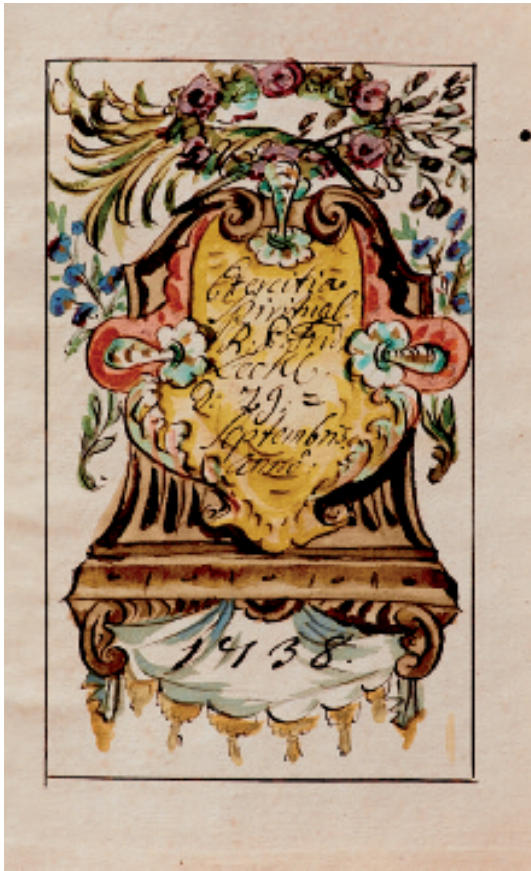 Exercitia
Spiritual.
R. P. Frid
D. 29. =
Septembris
anno.
1738.